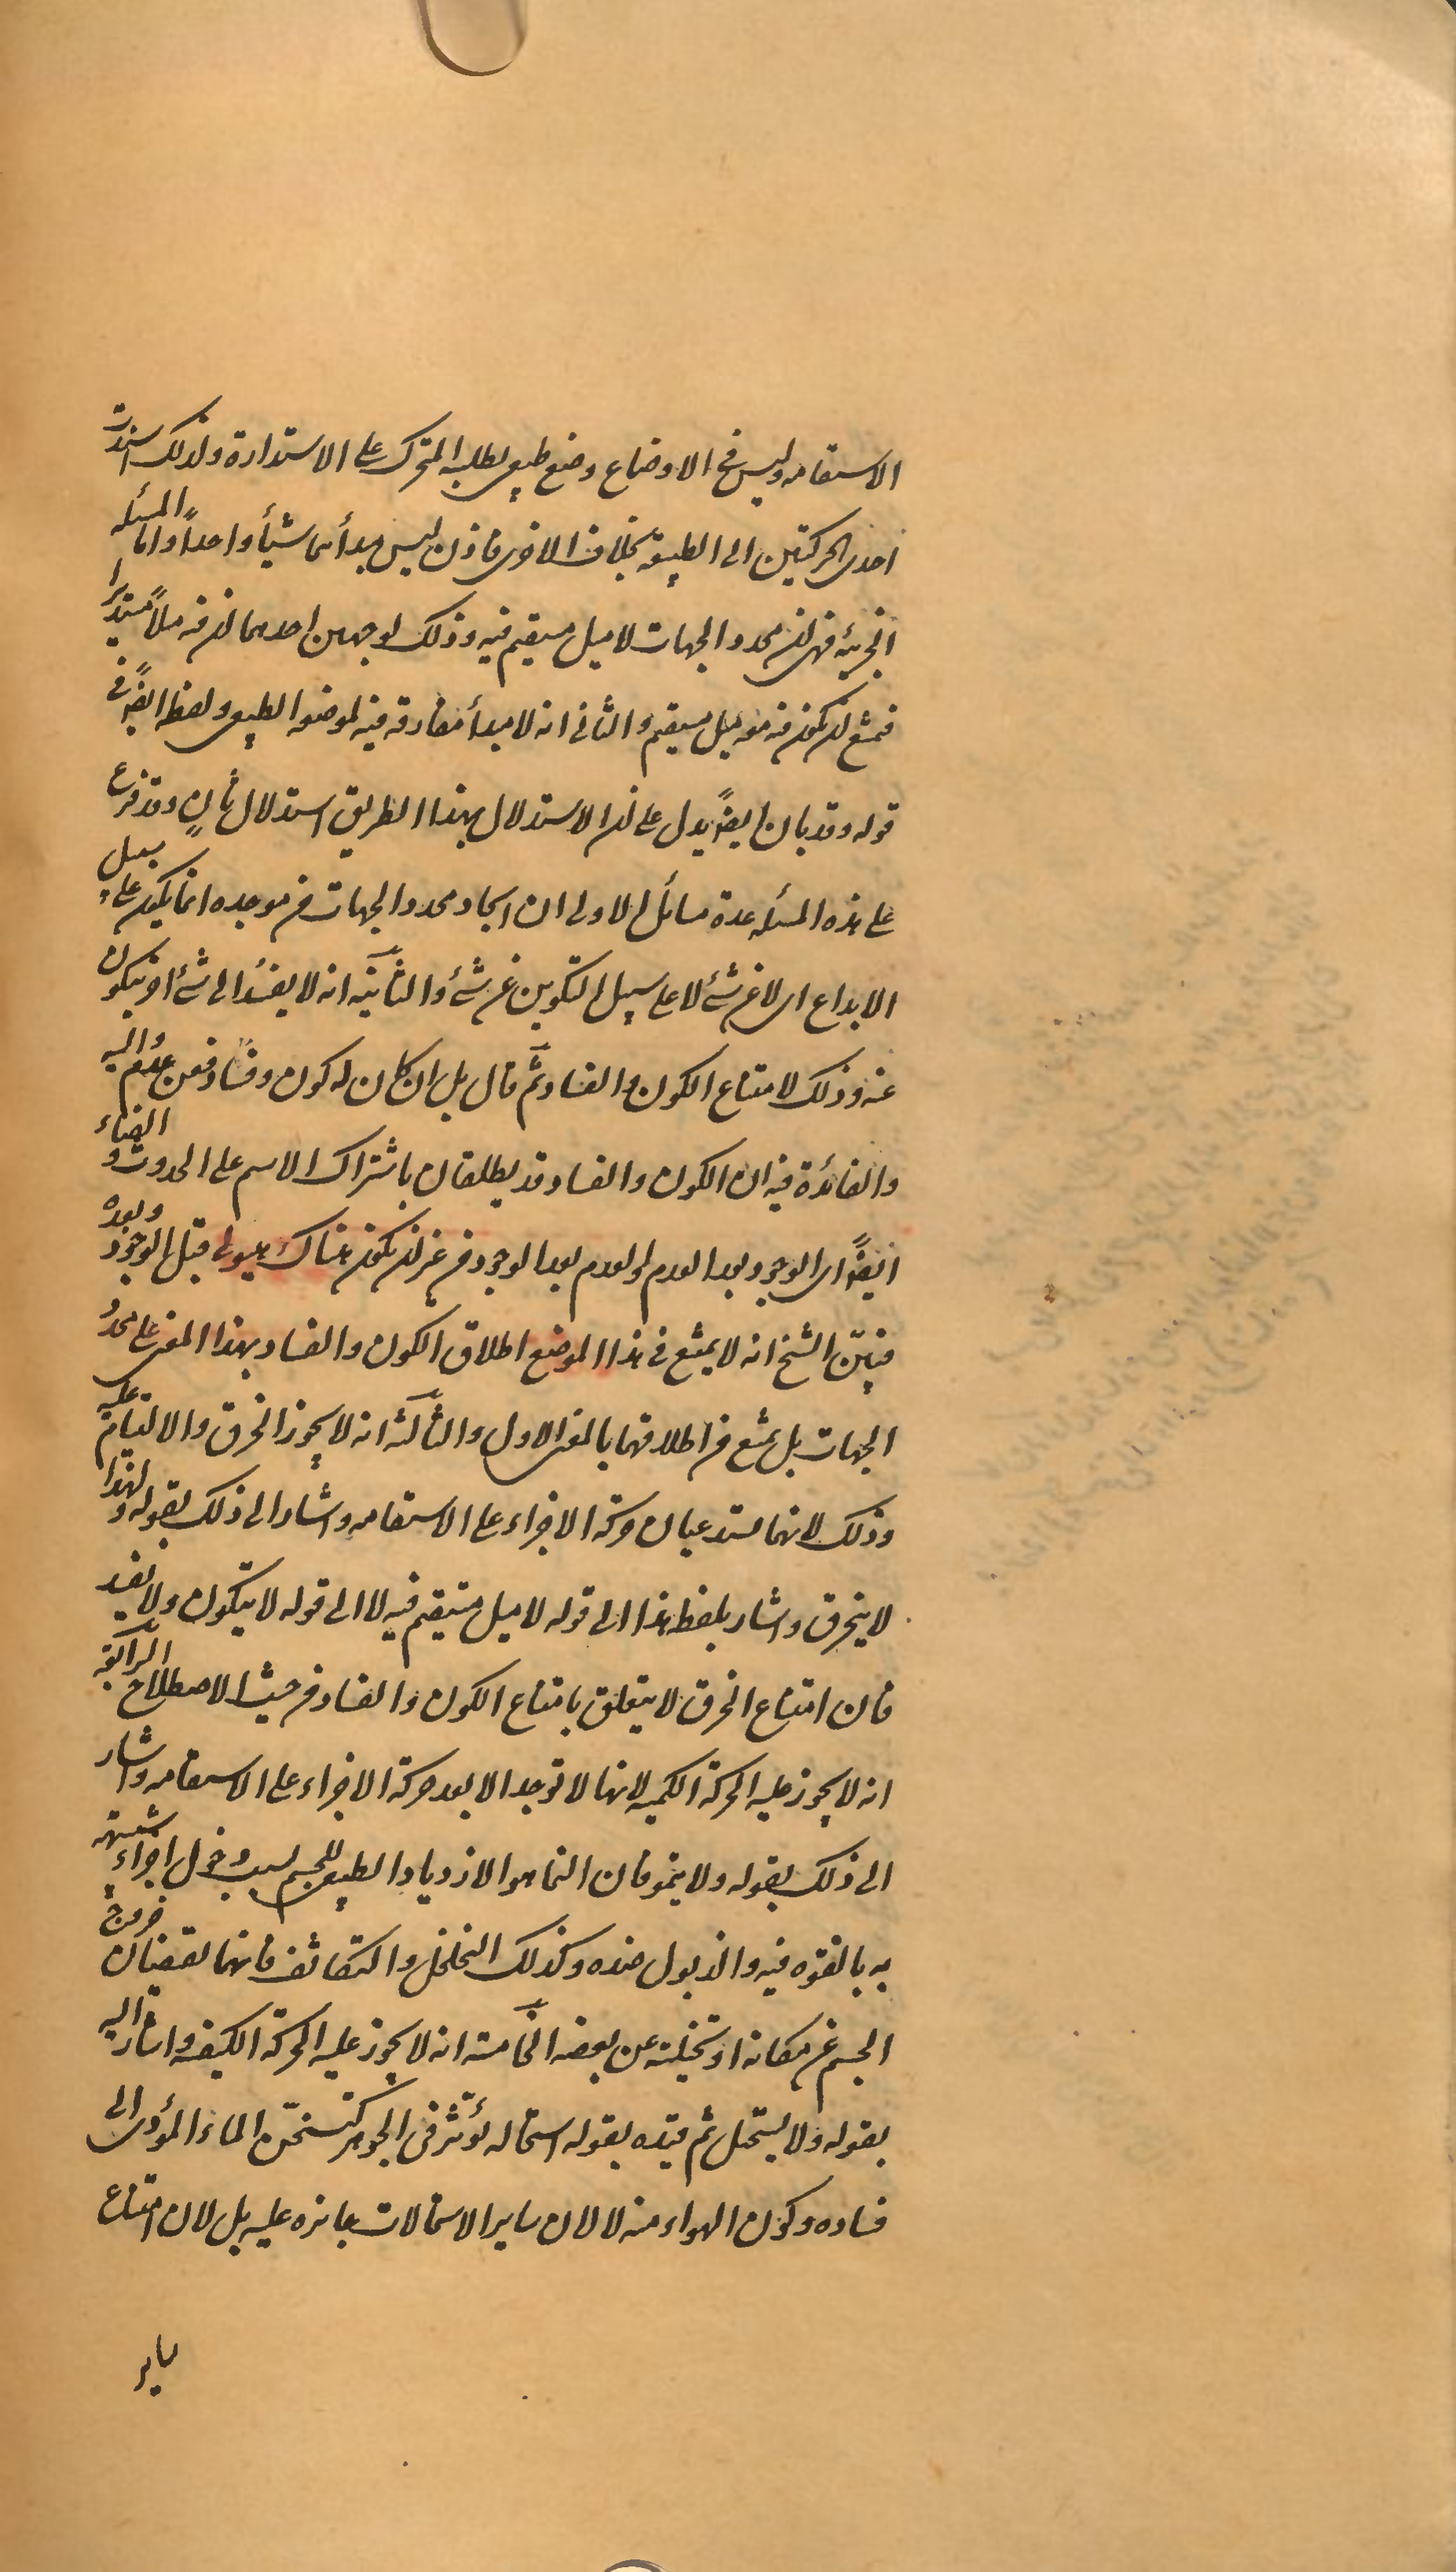 الاستقامه وليس فى الاوضاع وضع طبيعى يطلبه المتحرك على الاستدارة ولذلك استندت
احدى الحركتين الى الطبيعة بخلاف الاخرى فاذن ليس مبدأهما شيأ واحداً واما المسئله
الجزئية فهى ان محدد الجهات لا ميل مستقيم فيه وذلك لوجهين احدهما ان فيه ميلاً مستديرا
فيمتنع ان يكون فيه ميل مستقيم والثانى انه لا مبدأ مفارقة فيه لموضعه الطبيعى ولفظه ايضاً فى
قوله وقد بان ايضاً يدل على ان الاستدلال بهذا الطريق استدلال ثانٍ وقد فرع
على هذه المسئله عدة مسائل الاولى ان ايجاد محدد الجهات من موجده انما يكون على سبيل
الابداع اى لا عن شئ لا على سبيل التكوين عن شئ والثانيّة انه لا يفسد الى شئ اخر يتكون
عنه وذلك لامتناع الكون والفساد ثم قال بل ان كان له كون وفساد فعن عدم واليه
والفائدة فيه ان الكون والفساد قد يطلقان باشتراك الاسم على الحدوث والفناء
ايضاً اى الوجود بعد العدم والعدم بعد الوجود من غير ان يكون هناك هيولى قبل الوجود وبعده
فبيّن الشيخ انه لا يمتنع فى هذا الموضع اطلاق الكون والفساد بهذا المعنى على محدد
الجهات بل يمتنع من اطلاقهما بالمعنى الاول والثالثة انه لا يجوز الخرق والالتيام عليه
وذلك لانهما يستدعيان حركة الاجزاء على الاستقامه واشار الى ذلك بقوله ولهذا
لا ينخرق واشار بلفظ هذا الى قوله لا ميل مستقيم فيه لا الى قوله لا يتكون ولا يفسد
فان امتناع الخرق لا يتعلق بامتناع الكون والفساد من حيث الاصطلاح الرابعة
انه لا يجوز عليه الحركة الكميه لانها لا توجد الا بعد حركة الاجزاء على الاستقامه واشار
الى ذلك بقوله ولا ينمو فان النما هو الازدياد الطبيعى للجسم بسبب دخول اجزاء شبيهة
به بالقوه فيه والذبول ضده وكذلك التخلخل والتكاثف فانهما يقتضيان خروج
الجسم عن مكانه او تخليته عن بعضه الخامسة انه لا يجوز عليه الحركة الكيفيه واشار اليه
بقوله ولا يستحيل ثم قيّده بقوله استحالة تؤثر فى الجوهر كتسخّن الماء المؤدى الى
فساده وكون الهواء منه لا لان ساير الاستحالات جائزه عليه بل لان امتناع
ساير